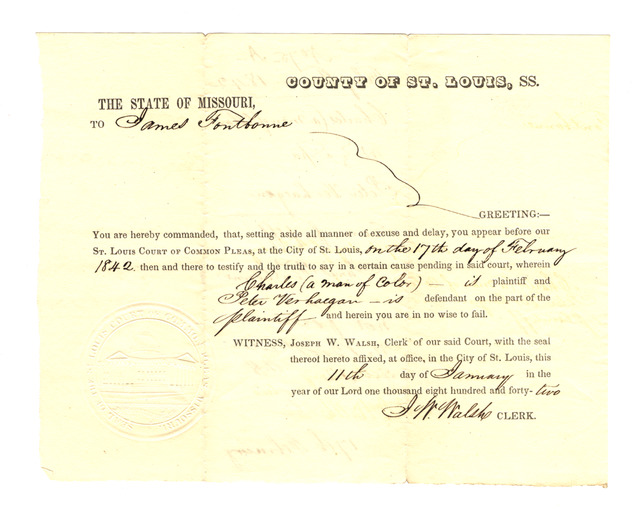 COUNTY OF ST. LOUIS, SS.
THE STATE OF MISSOURI,
TO James Fontbonne
GREETING:—
You are hereby commanded, that, setting aside all manner of excuse and delay, you appear before our
ST. LOUIS COURT OF COMMON PLEAS, at the City of St. Louis, on the 17th day of February
1842 then and there to testify and the truth to say in a certain cause pending in said court, wherein
Charles (a man of color) — is plaintiff and
Peter Verhaegan — is defendant on the part of the
plaintiff — and herein you are in no wise to fail.
WITNESS, JOSEPH W. WALSH, Clerk of our said Court, with the seal
thereof hereto affixed, at office, in the City of St. Louis, this
11th day of January in the
year of our Lord one thousand eight hundred and forty-two
J. W. Walsh CLERK.